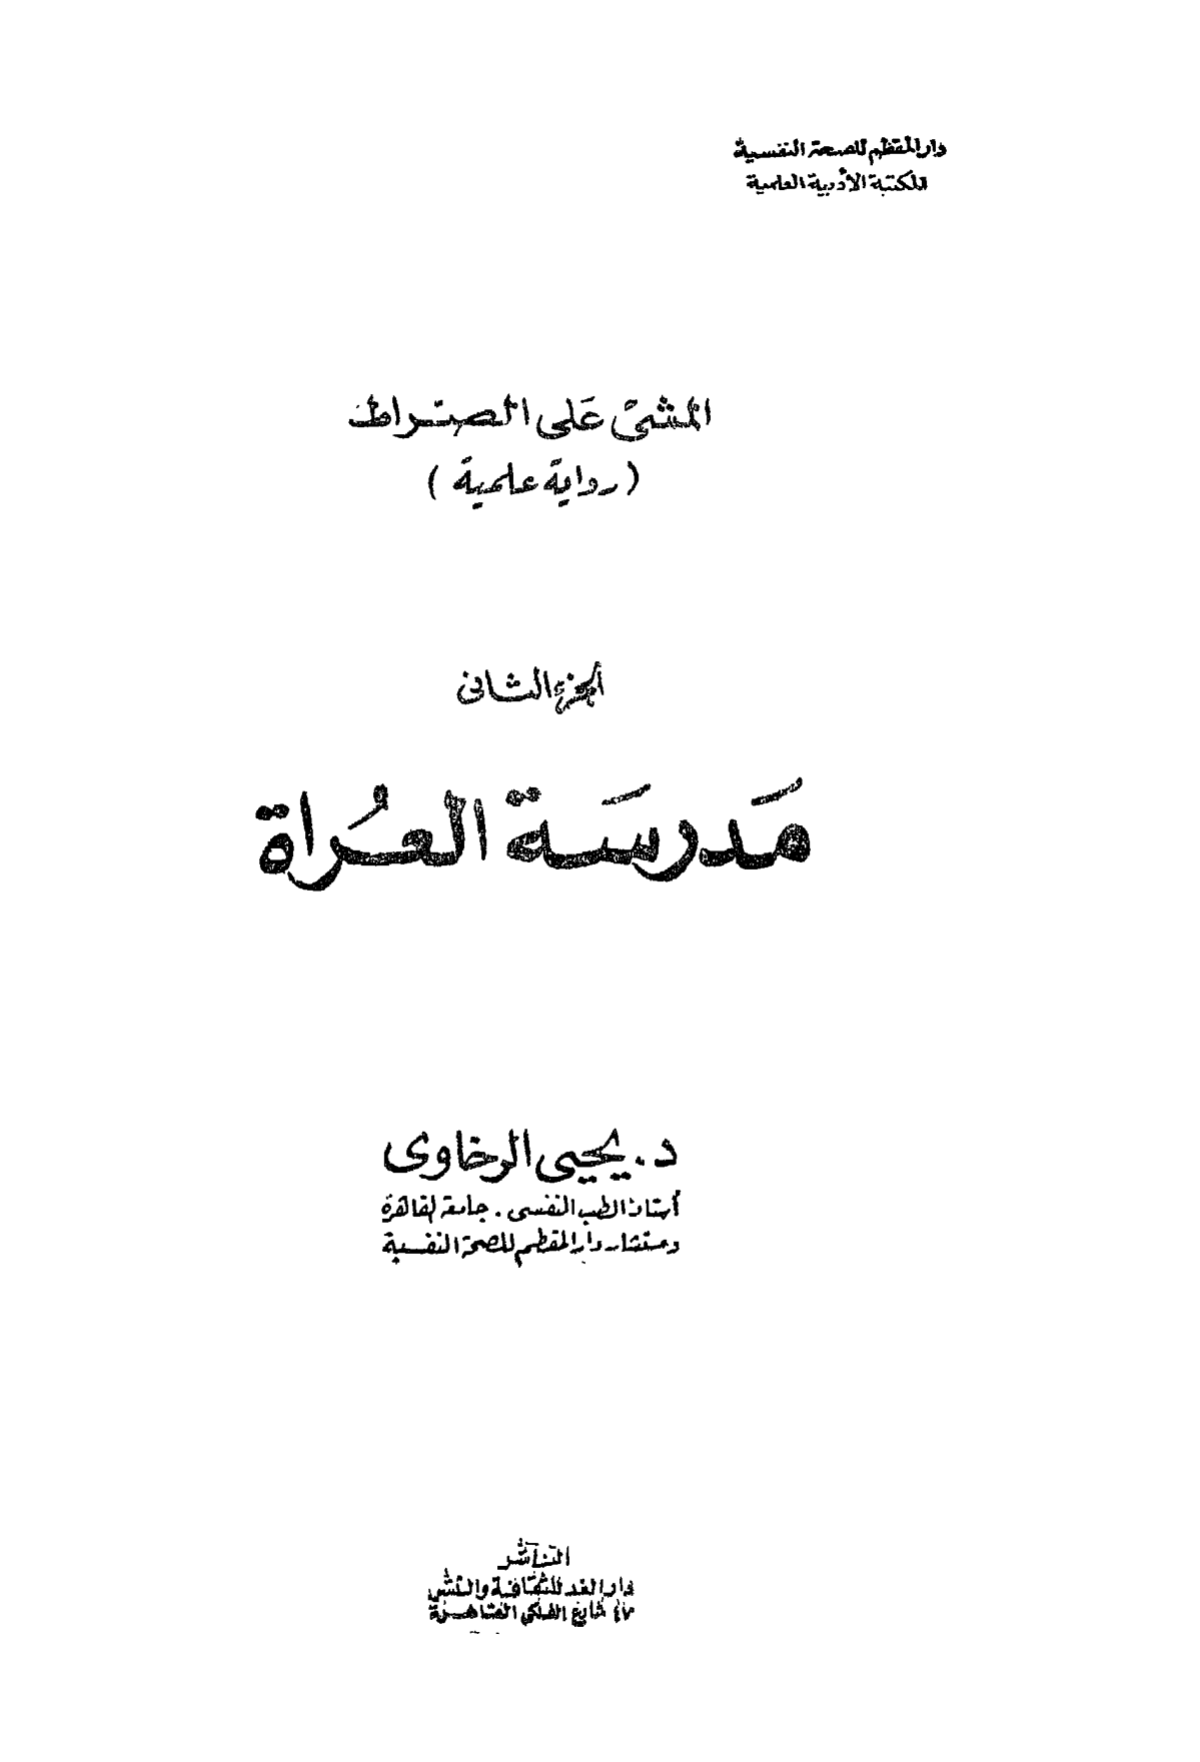 دار المقطم للصحة النفسية
المكتبة الأدبية العلمية
المشى عَلى الصراط
(رواية علمية)
الجزء الثانى
مَدرسَة العُراة
د. يحيى الرخاوى
أستاذ الطب النفسى . جامعة القاهرة
ومستشار دار المقطم للصحة النفسية
الناشر
دار الغد للثقافة والنشر
شارع الفلكى القاهرة